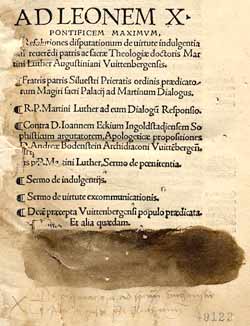 AD LEONEM X.
PONTIFICEM MAXIMVM,
Resolutiones disputationum de uirtute indulgentia
rũ reuerẽdi patris ac sacræ Theologiæ doctoris Mar
tini Luther Augustiniani Vuittenbergensis.
Fratris patris Siluestri Prieratis ordinis prædicato
rum Magistri sacri Palacij ad Martinum Dialogus.
¶ R.P. Martini Luther ad eum Dialogũ Responsio.
Contra D. Ioannem Eckium Ingolstadiensem So
phisticum argutatorem, Apologeticæ propositiones
D. Andreæ Bodenstein Archidiaconi Vuittẽbergẽ
R.P. Martini Luther, Sermo de pœnitentia.
¶ Sermo de indulgentijs.
¶ Sermo de uirtute excommunicationis.
¶ Decẽ præcepta Vuittenbergensi populo prædicata.
Et alia quædam.
49122